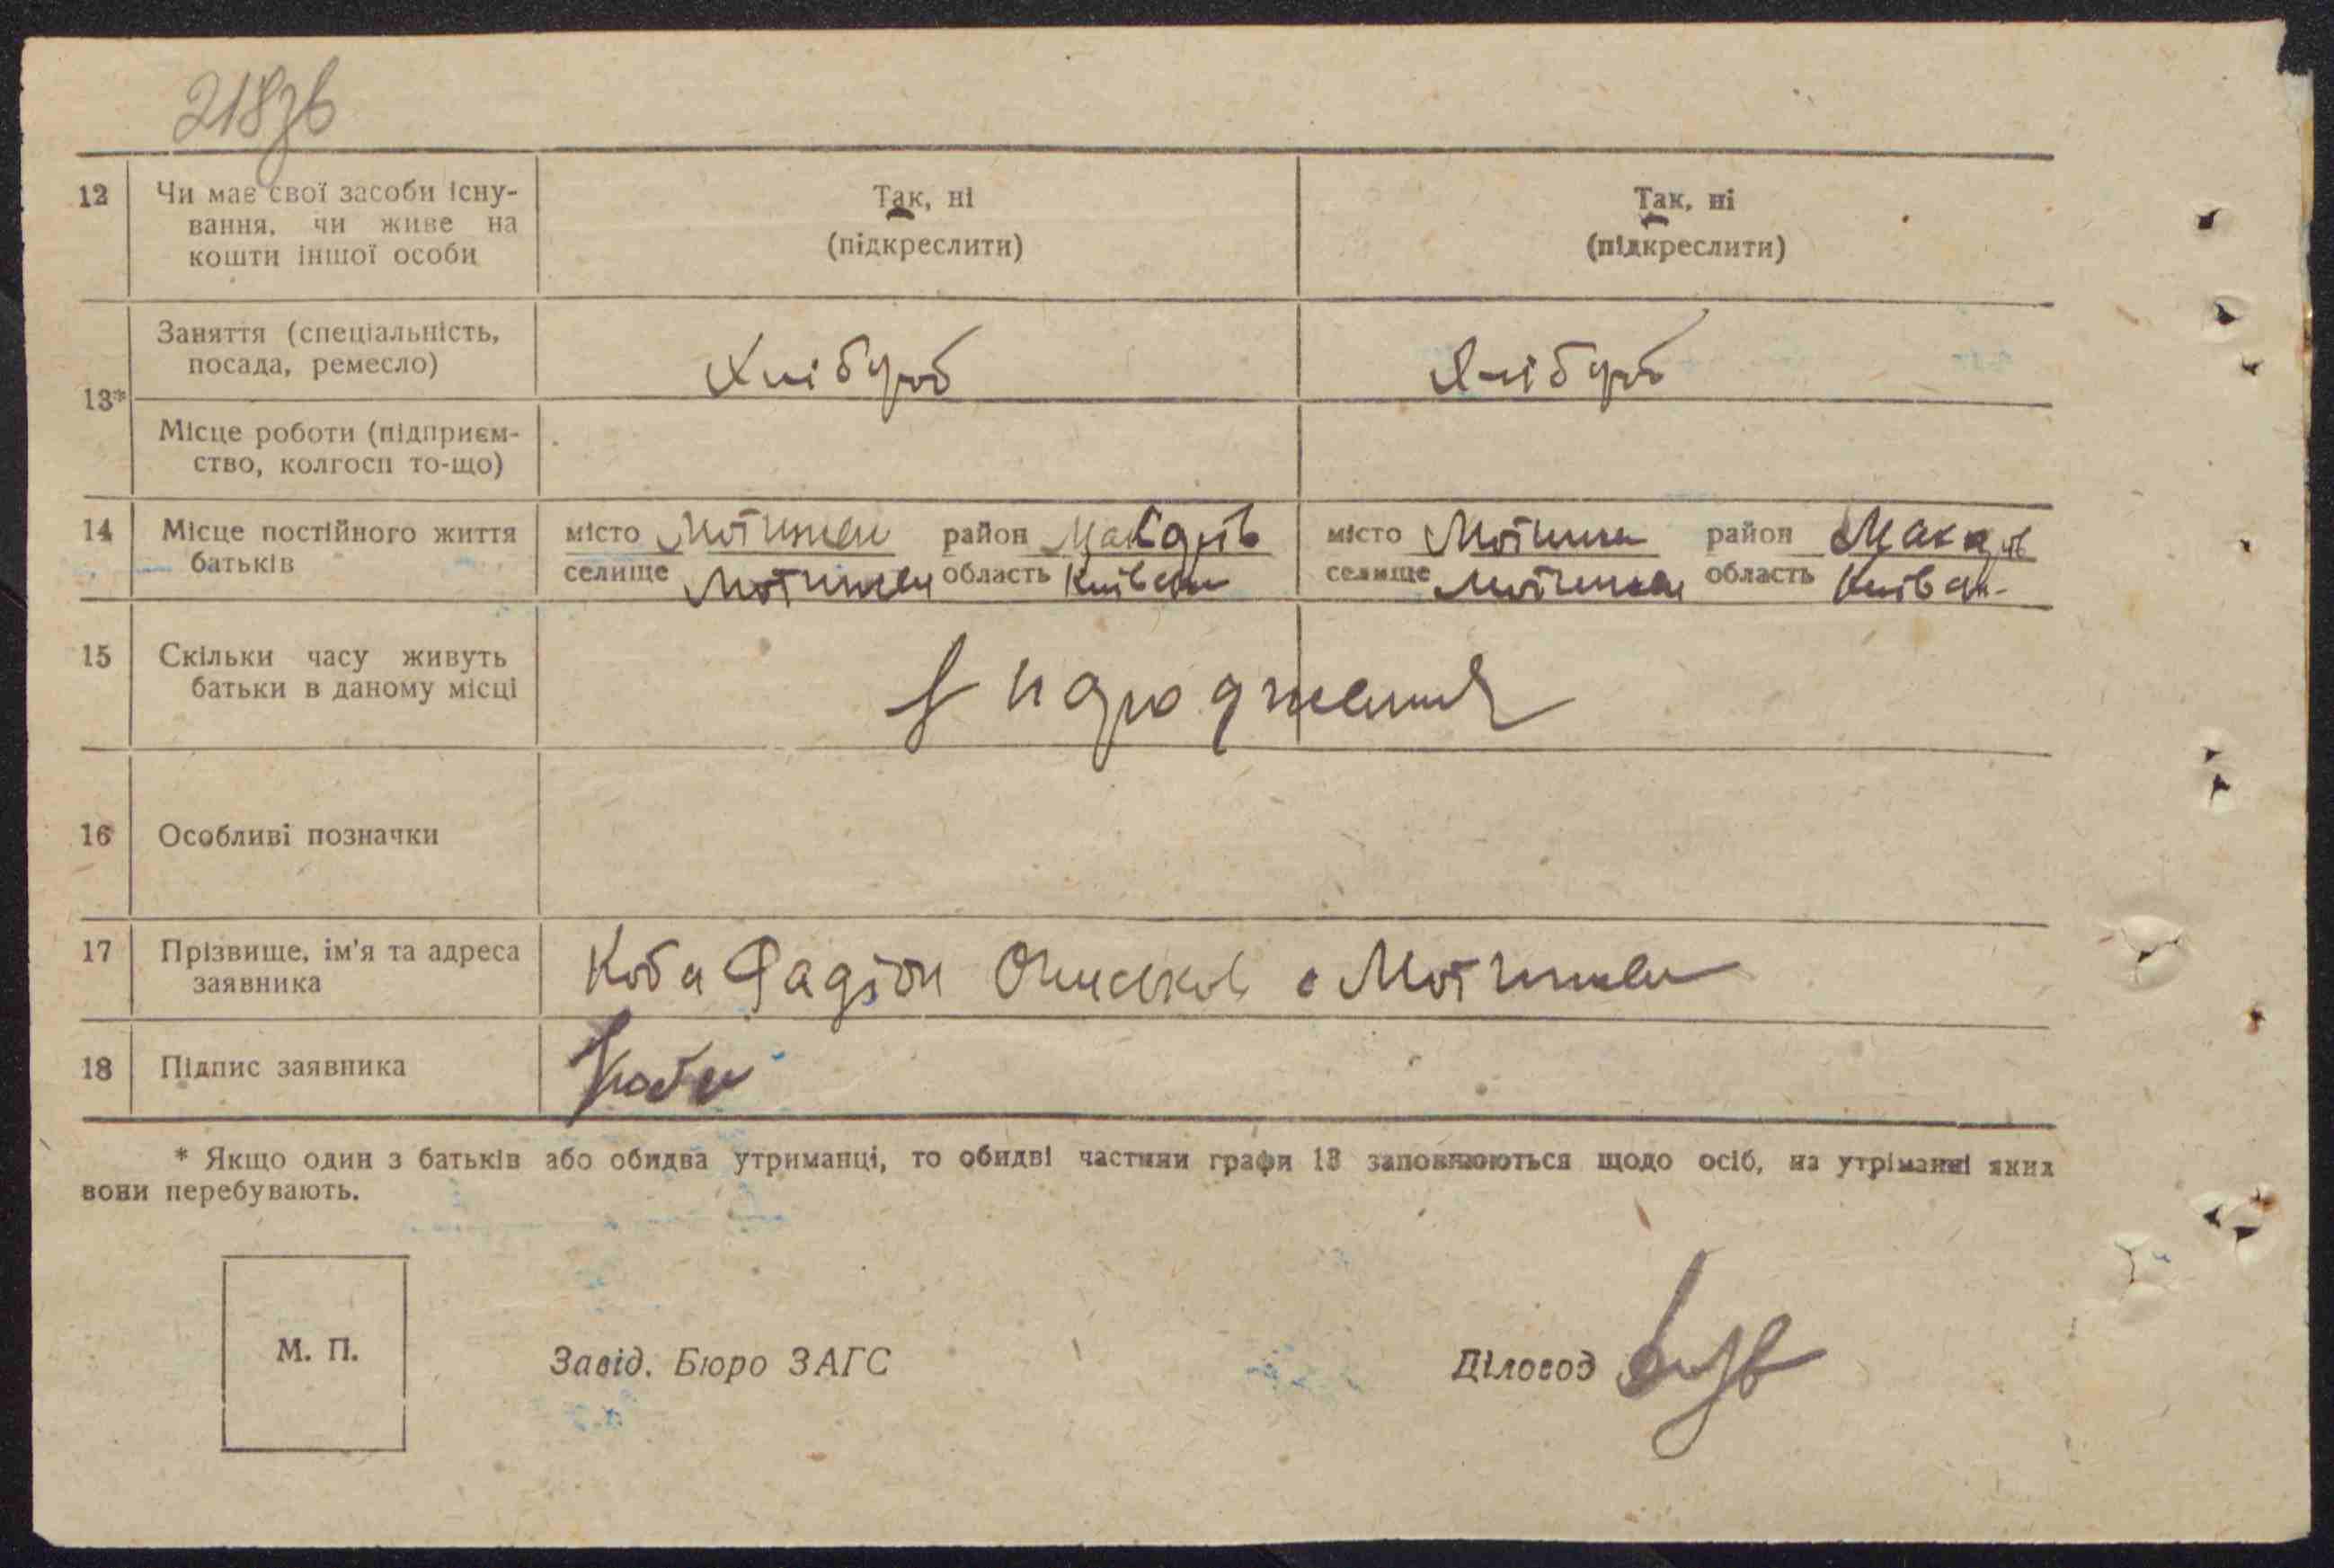 218зв
12 Чи має свої засоби існу- Так, ні Так, ні
вання, чи живе на
кошти іншої особи (підкреслити) (підкреслити)
Заняття (спеціальність,
посада, ремесло) Хлібороб Хлібороб
13*
Місце роботи (підприєм-
ство, колгосп то-що)
14 Місце постійного життя місто Мотижен район Макарів місто Мотижен район Макарів
батьків селище Мотижен область Київськ селище Мотижен область Київськ
15 Скільки часу живуть
батьки в даному місці з народження
16 Особливі позначки
17 Прізвище, ім'я та адреса Коба с Мотижен
заявника
18 Підпис заявника Коба
* Якщо один з батьків або обидва утриманці, то обидві частини графи 13 заповнюються щодо осіб, на утріманні яких
вони перебувають.
М. П. Завід. Бюро ЗАГС Діловод